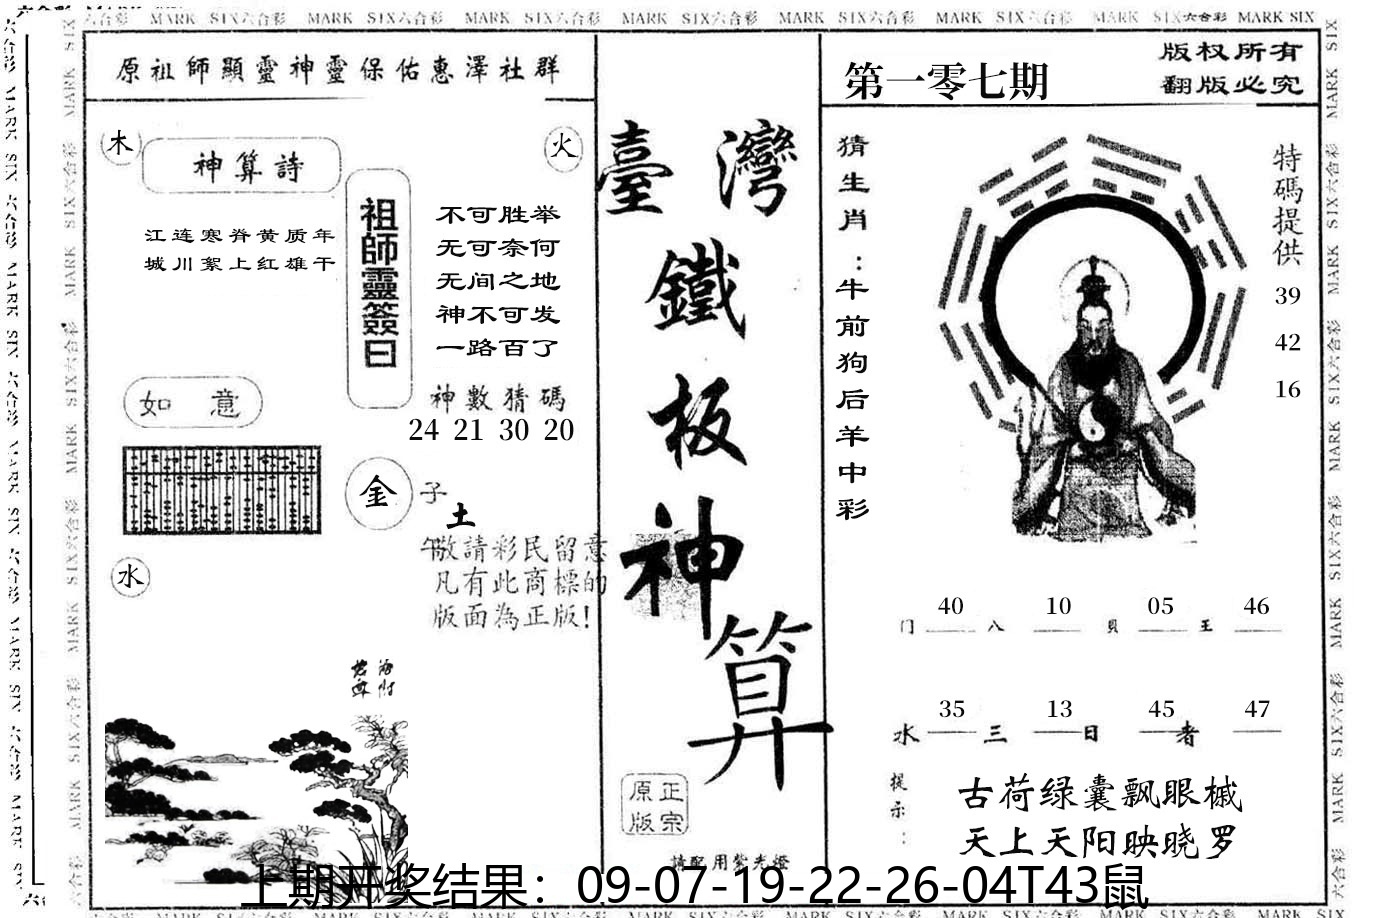 MARK SIX六合彩 MARK SIX六合彩 MARK SIX六合彩 MARK SIX六合彩 MARK SIX六合彩 MARK SIX六合彩 MARK SIX六合彩 MARK SIX
原祖師顯靈神靈保佑惠澤社群
木
神算詩
火
江连寒脊黄质年
城川絮上红雄干
祖師靈簽曰
不可胜举
无可奈何
无间之地
神不可发
一路百了
神數猜碼
24 21 30 20
如意
金
子
土
午
水
敬請彩民留意
凡有此商標的
版面為正版!
臺灣
鐵
板
神
算
正宗
原版
請配用紫光燈
第一零七期
版权所有
翻版必究
猜生肖:牛前狗后羊中彩
特碼提供
39
42
16
门 40 八 10 貝 05 王 46
水 35 三 13 日 45 者 47
提示:
古荷绿囊飘眼槭
天上天阳映晓罗
上期开奖结果：09-07-19-22-26-04T43鼠